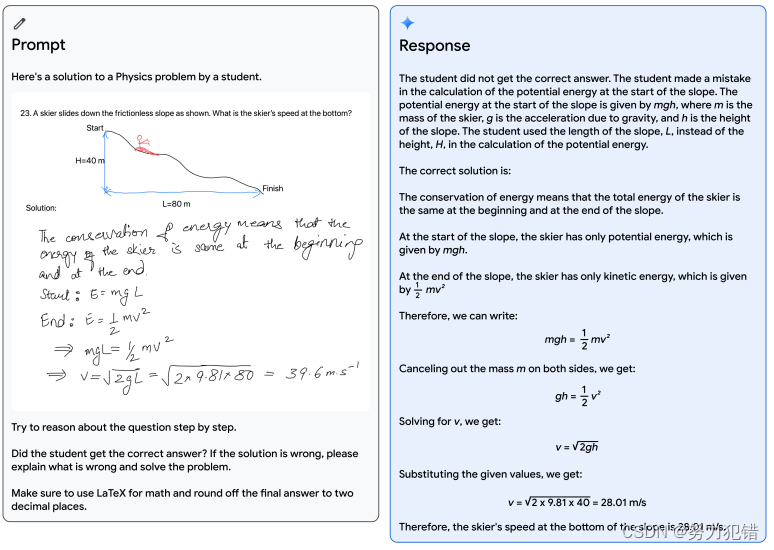 Prompt
Here's a solution to a Physics problem by a student.
23. A skier slides down the frictionless slope as shown. What is the skier's speed at the bottom?
Start
H=40 m
Finish
L=80 m
Solution:
The conservation of energy means that the
energy of the skier is same at the beginning
and at the end.
Start : E = mg L
End : E = 1/2 mv²
⇒ mgL = 1/2 mv²
⇒ v = √2gL = √2×9.81×80 = 39.6 m.s⁻¹
Try to reason about the question step by step.
Did the student get the correct answer? If the solution is wrong, please
explain what is wrong and solve the problem.
Make sure to use LaTeX for math and round off the final answer to two
decimal places.
Response
The student did not get the correct answer. The student made a mistake
in the calculation of the potential energy at the start of the slope. The
potential energy at the start of the slope is given by mgh, where m is the
mass of the skier, g is the acceleration due to gravity, and h is the height
of the slope. The student used the length of the slope, L, instead of the
height, H, in the calculation of the potential energy.
The correct solution is:
The conservation of energy means that the total energy of the skier is
the same at the beginning and at the end of the slope.
At the start of the slope, the skier has only potential energy, which is
given by mgh.
At the end of the slope, the skier has only kinetic energy, which is given
by 1/2 mv²
Therefore, we can write:
mgh = 1/2 mv²
Canceling out the mass m on both sides, we get:
gh = 1/2 v²
Solving for v, we get:
v = √2gh
Substituting the given values, we get:
v = √2 x 9.81 x 40 = 28.01 m/s
Therefore, the skier's speed at the bottom of the slope is 28.01 m/s.
CSDN @努力犯错